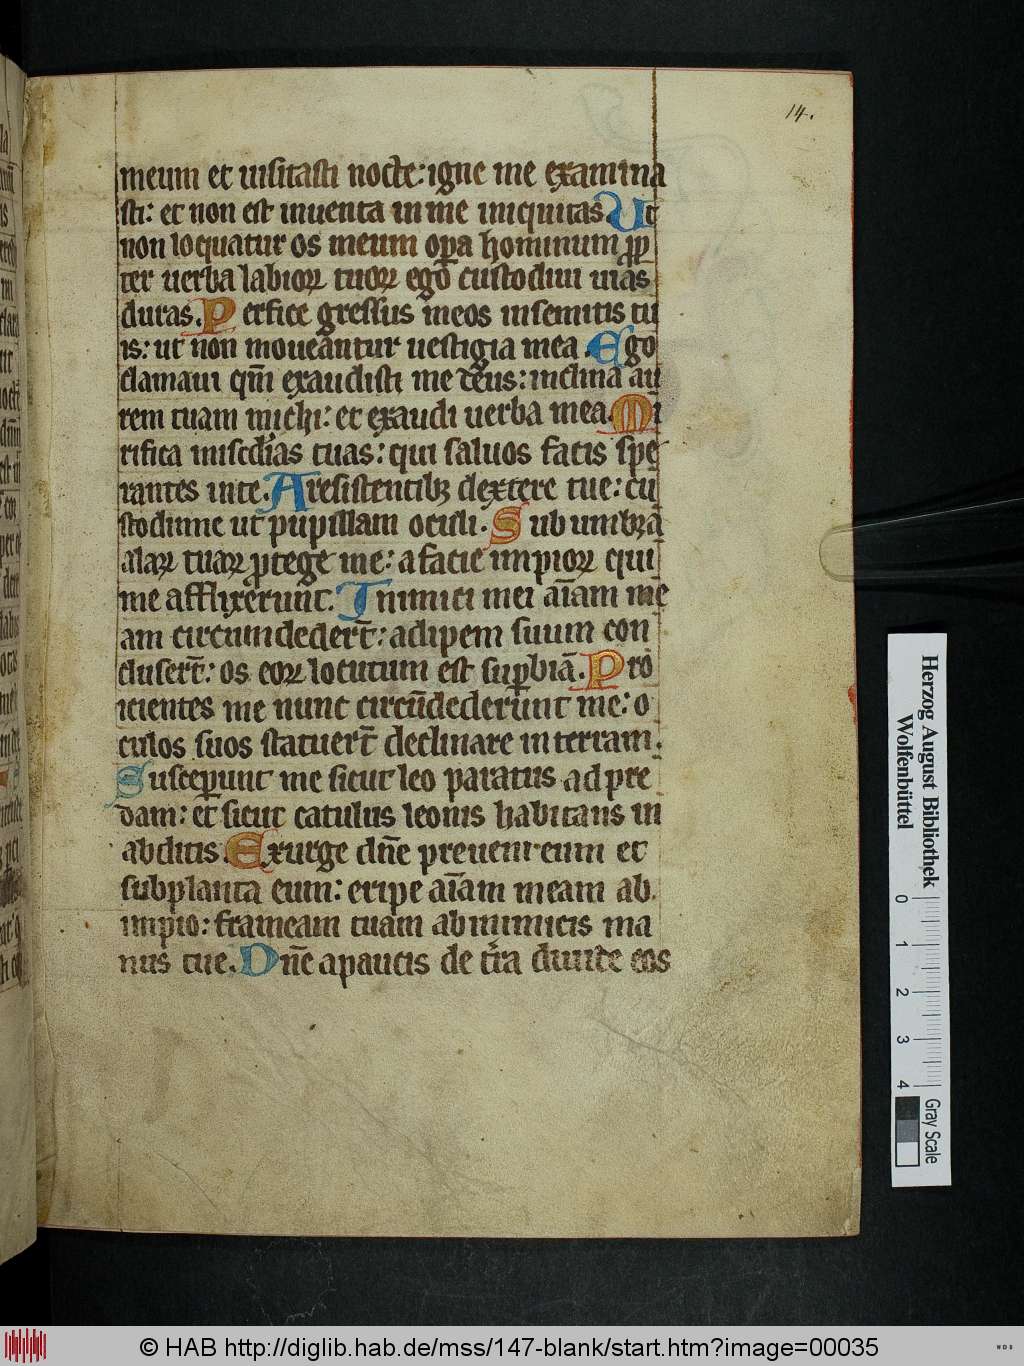 14.
meum et uisitasti nocte: igne me examina
sti: et non est inuenta in me iniquitas Ut
non loquatur os meum opa hominum pp
ter uerba labioꝝ tuoꝝ ego custodiui uias
duras. Perfice gressus meos in semitis tu
is: ut non moueantur uestigia mea. Ego
clamaui qm̄ exaudisti me deus: inclina au
rem tuam michi: et exaudi uerba mea. Mi
rifica misc̄dias tuas: qui saluos facis spe
rantes in te. A resistentibꝫ dextere tue: cu
stodi me ut pupillam oculi. Sub umbra
alaꝝ tuaꝝ ꝓtege me: a facie impioꝝ qui
me afflixerunt. Inimici mei aīam me
am circumdedert̄: adipem suum con
clusert̄: os eoꝝ locutum est suꝑbiā. Pro
icientes me nunc circūdederunt me: o
culos suos statuert̄ declinare in terram.
Susceperunt me sicut leo paratus ad pre
dam: et sicut catulus leonis habitans in
abditis. Exurge dn̄e preueni eum et
subplanta eum: eripe aīam meam ab
impio: frameam tuam ab inimicis ma
nus tue. Dn̄e a paucis de tr̄a diuide eos
Herzog August Bibliothek
Wolfenbüttel
0 1 2 3 4
Gray Scale
© HAB http://diglib.hab.de/mss/147-blank/start.htm?image=00035